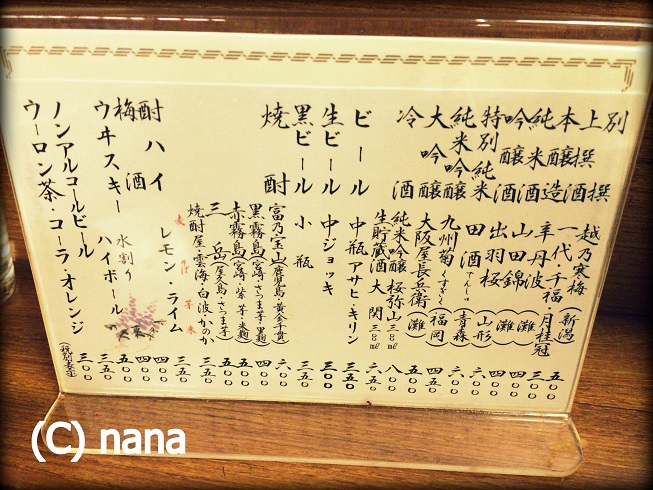 別撰 越乃寒梅(新潟) 五五〇
上撰 一代千福 三〇〇
本醸造 辛丹波 月桂冠 三五〇
純米酒 山田錦(灘) 四〇〇
吟醸酒 出羽桜 山形 四〇〇
特別純米 田酒 でんしゅ 青森 六〇〇
純米吟醸 九州菊 くすぎく 福岡
大吟醸 大阪屋長兵衛(灘) 五〇〇
冷酒 純米吟醸 桜弥山 八〇〇
生貯蔵酒 大関 六五〇
ビール 中瓶アサヒ・キリン 五五〇
生ビール 中ジョッキ 五五〇
黒ビール 小瓶 三五〇
焼酎 富乃宝山(鹿児島・黄金千貫) 六〇〇
黒霧島(宮崎・さつま芋・黒麹)
赤霧島(宮崎・紫芋・米麹)
三岳(屋久島・さつま芋) 五〇〇
焼酎屋・雲海・白波・かのか 三五〇
麦 そば 芋 米
酎ハイ レモン・ライム 四〇〇
梅酒 四〇〇
ウヰスキー 水割り ハイボール
ノンアルコールビール 三五〇
ウーロン茶・コーラ・オレンジ 三〇〇
(税別表示)
(C) nana